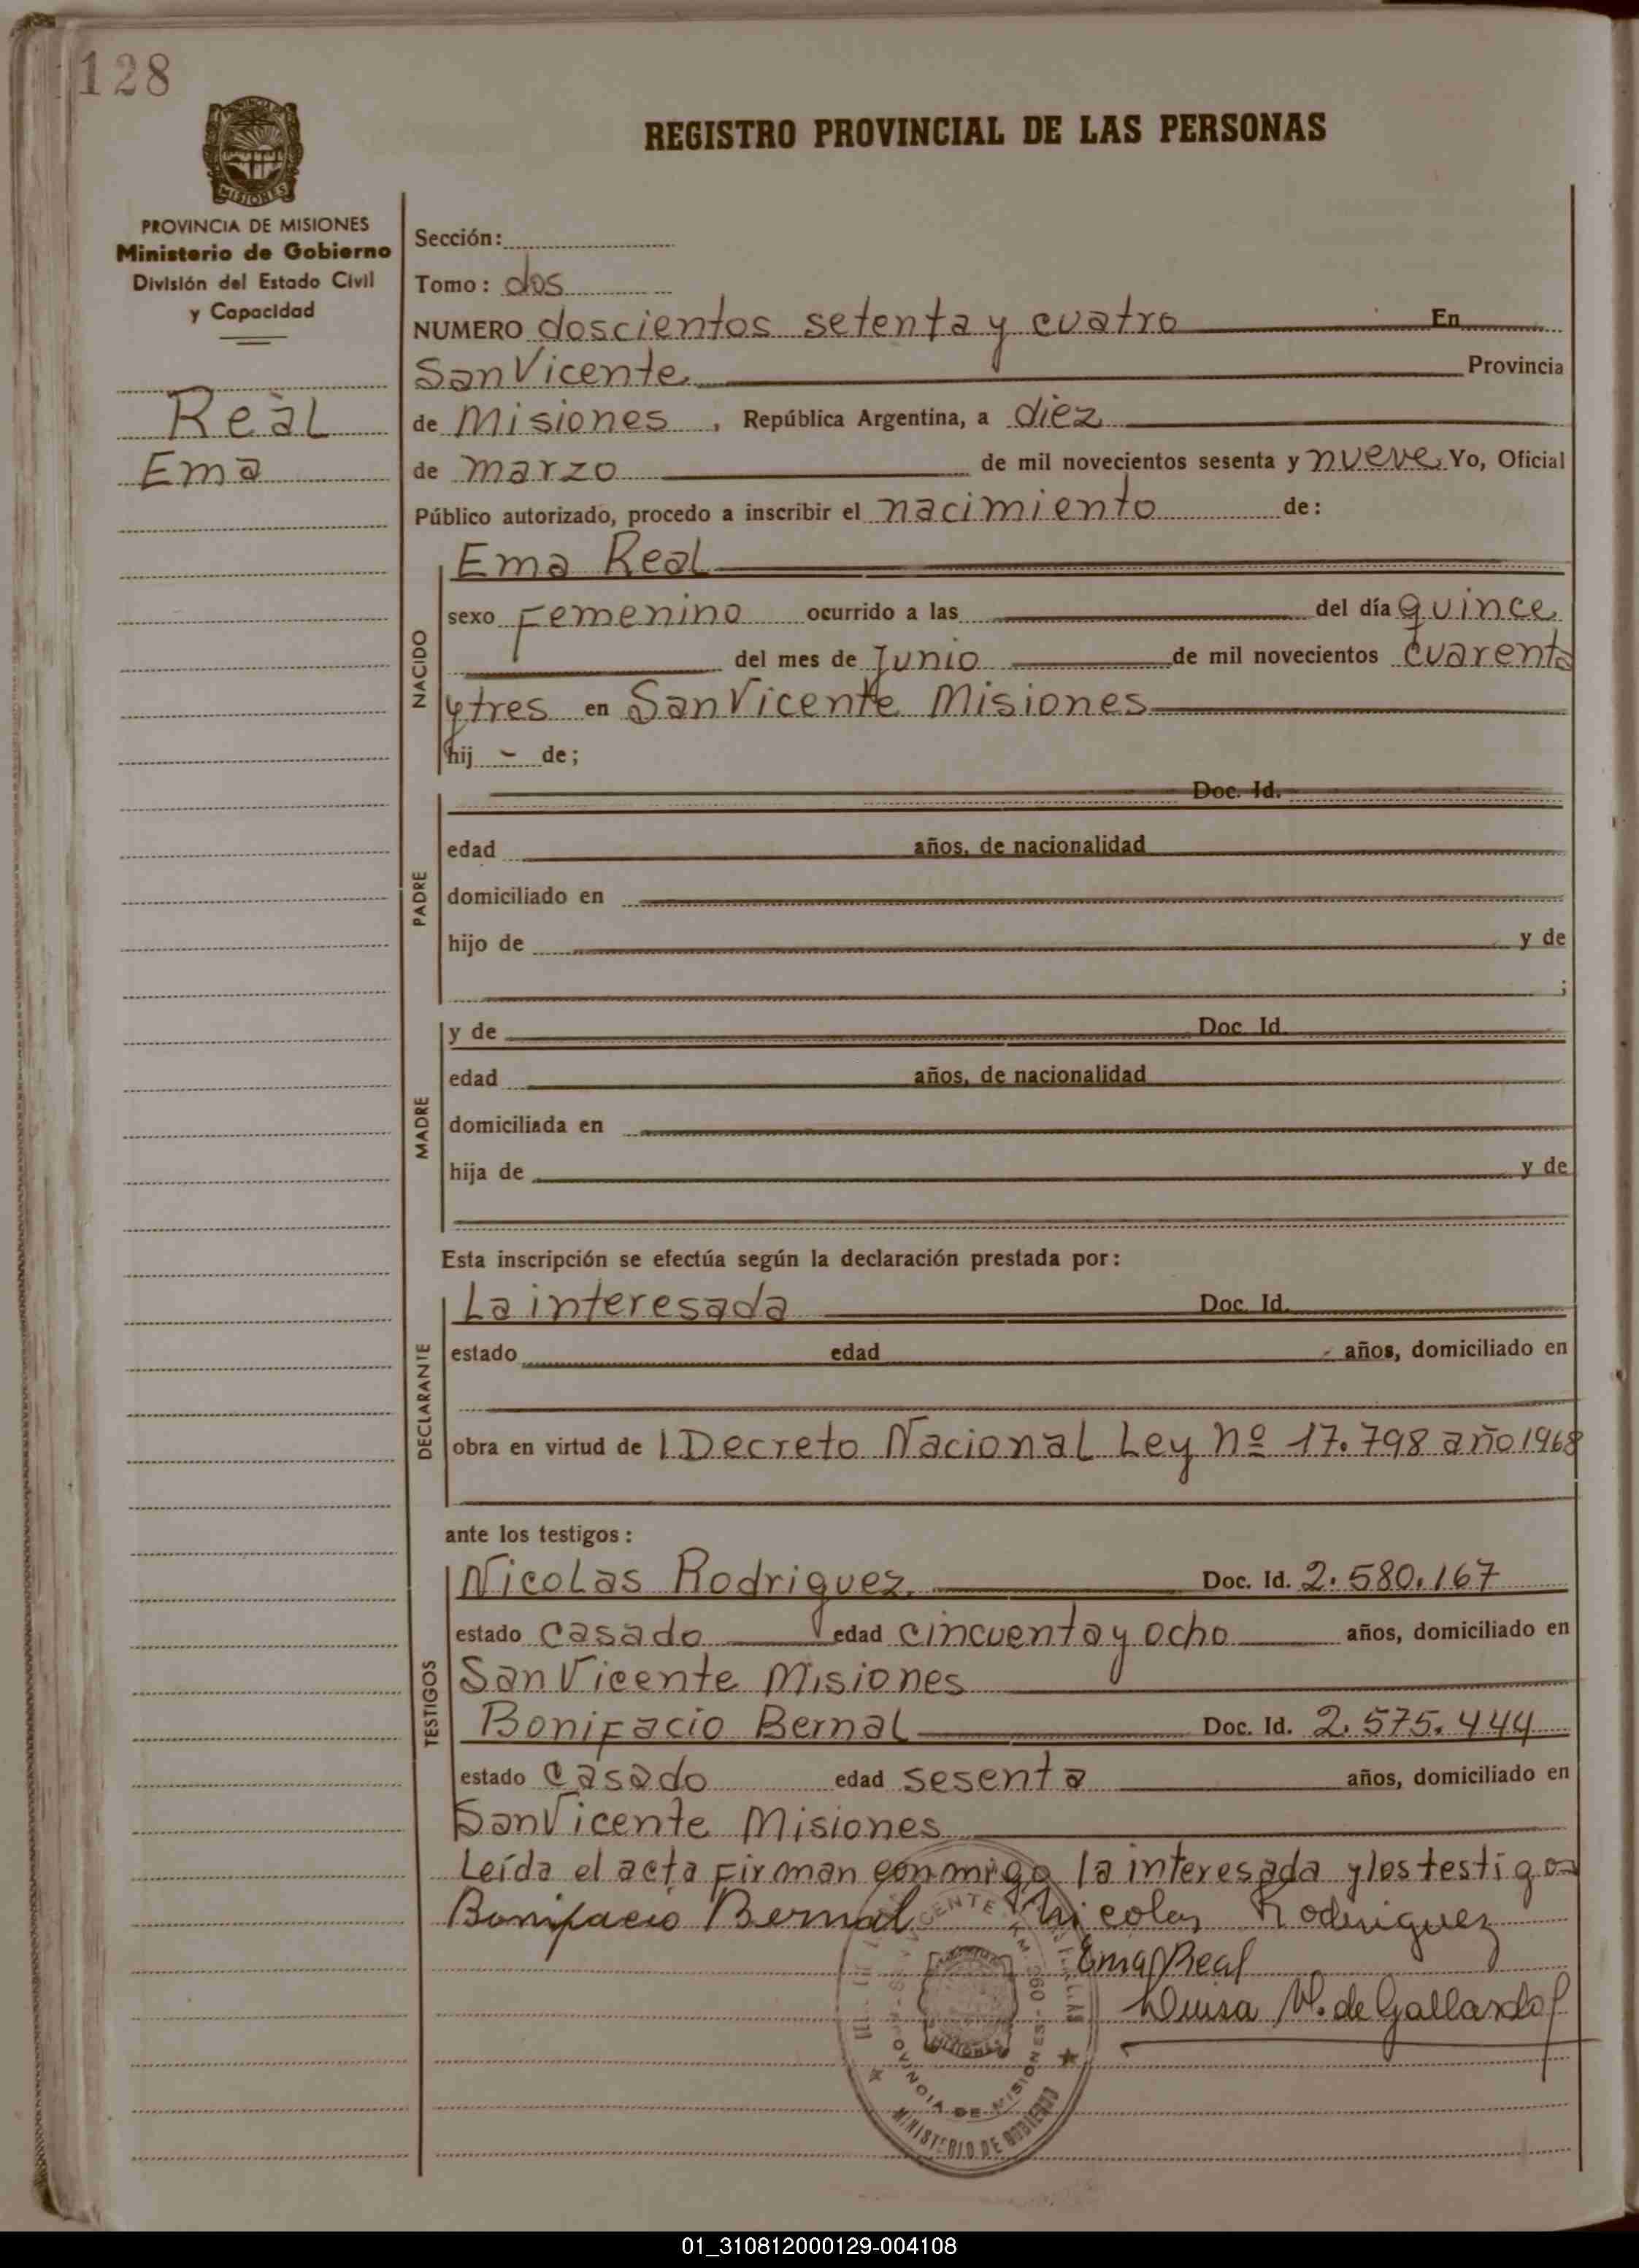 128
REGISTRO PROVINCIAL DE LAS PERSONAS
MISIONES
PROVINCIA DE MISIONES
Ministerio de Gobierno
División del Estado Civil
y Capacidad
Real
Ema
Sección:
Tomo: dos
NUMERO doscientos setenta y cuatro En
San Vicente Provincia
de Misiones, República Argentina, a diez
de marzo de mil novecientos sesenta y nueve Yo, Oficial
Público autorizado, procedo a inscribir el nacimiento de:
NACIDO
Ema Real
sexo Femenino ocurrido a las del día quince
del mes de Junio de mil novecientos cuarenta
y tres en San Vicente Misiones
hij - de;
PADRE
Doc. Id.
edad años, de nacionalidad
domiciliado en
hijo de y de
;
MADRE
y de Doc. Id.
edad años, de nacionalidad
domiciliada en
hija de y de
Esta inscripción se efectúa según la declaración prestada por:
DECLARANTE
La interesada Doc. Id.
estado edad años, domiciliado en
obra en virtud de l Decreto Nacional Ley nº 17.798 año 1968
ante los testigos:
TESTIGOS
Nicolas Rodriguez Doc. Id. 2.580.167
estado casado edad cincuenta y ocho años, domiciliado en
San Vicente Misiones
Bonifacio Bernal Doc. Id. 2.575.444
estado casado edad sesenta años, domiciliado en
San Vicente Misiones
Leída el acta firman conmigo la interesada y los testigos
Bonifacio Bernal Nicolas Rodriguez
Ema Real
Luisa M. de Gallardo
PROVINCIA DE MISIONES
MINISTERIO DE GOBIERNO
01_310812000129-004108